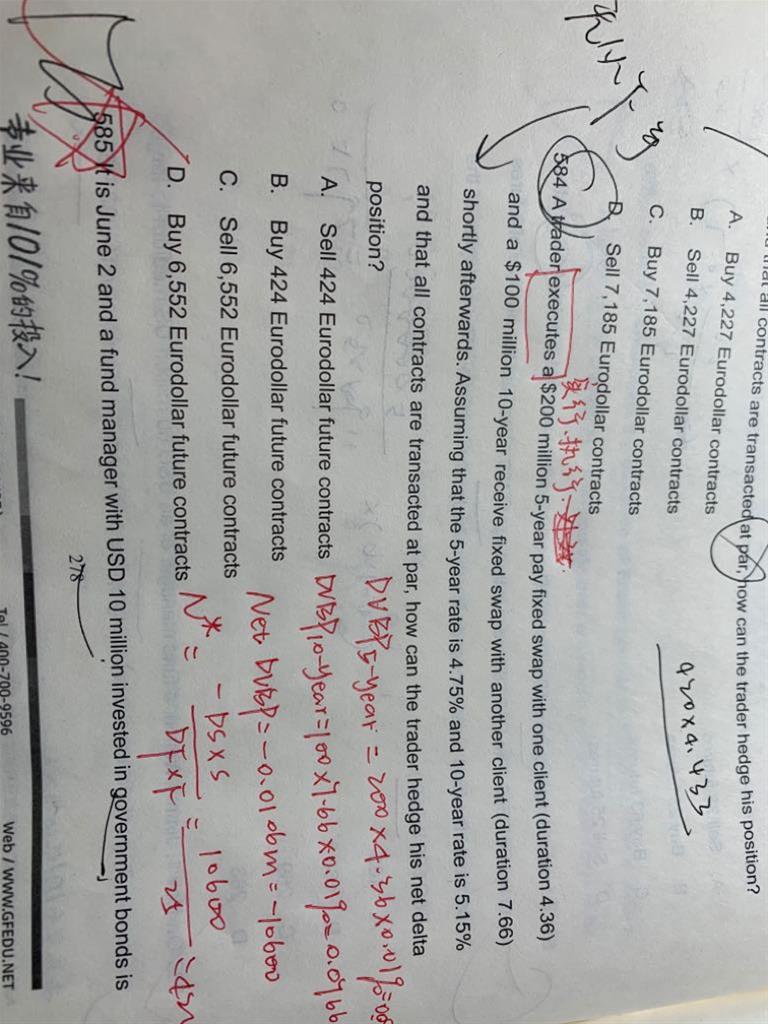 and that all contracts are transacted at par, how can the trader hedge his position?
A. Buy 4,227 Eurodollar contracts
B. Sell 4,227 Eurodollar contracts
C. Buy 7,185 Eurodollar contracts
D. Sell 7,185 Eurodollar contracts
420×4.433
584 A trader executes a $200 million 5-year pay fixed swap with one client (duration 4.36)
实行.执行.
and a $100 million 10-year receive fixed swap with another client (duration 7.66)
shortly afterwards. Assuming that the 5-year rate is 4.75% and 10-year rate is 5.15%
and that all contracts are transacted at par, how can the trader hedge his net delta
position?
A. Sell 424 Eurodollar future contracts
B. Buy 424 Eurodollar future contracts
C. Sell 6,552 Eurodollar future contracts
D. Buy 6,552 Eurodollar future contracts
DVBP5-year = 200×4.36×0.01%=
DVBP10-year=100×7.66×0.01%=0.0766
Net DVBP=-0.0106m=-10600
N* = -DS×S / DF×F = 10600 / 25 =
585 It is June 2 and a fund manager with USD 10 million invested in government bonds is
278
专业来自101%的投入!
Tel / 400-700-9596
Web / WWW.GFEDU.NET